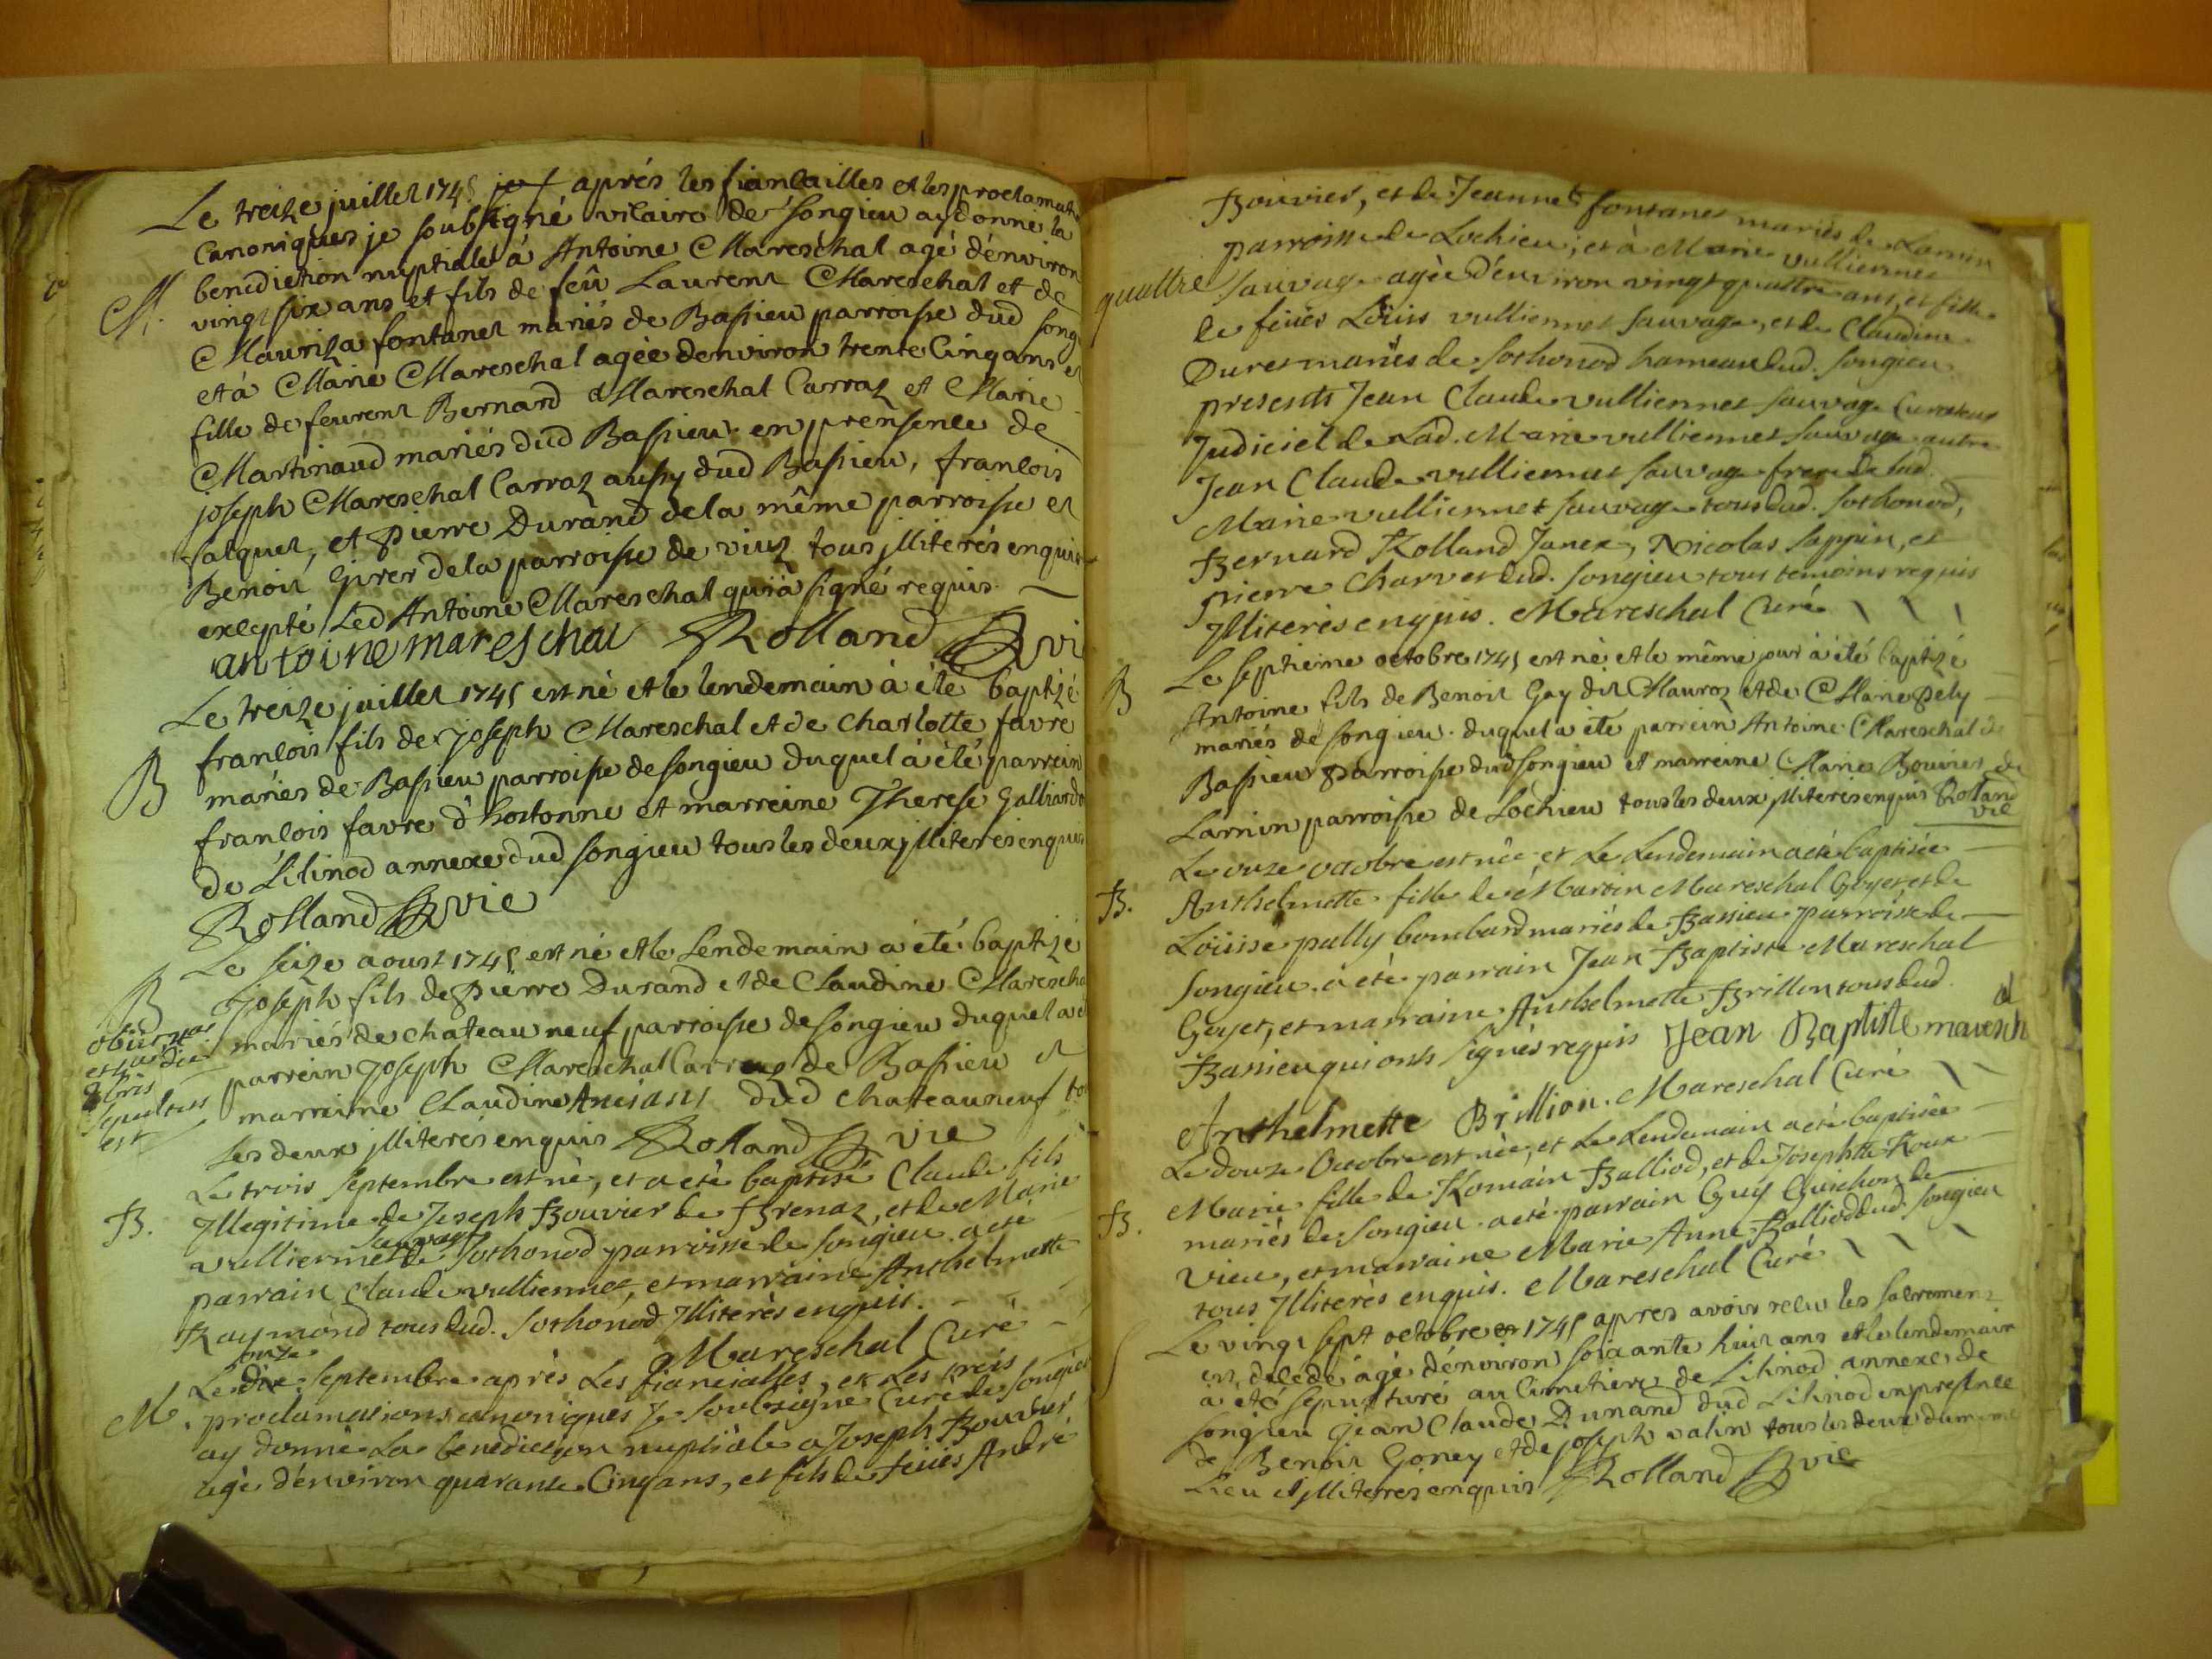 Le treize juillet 1745 après les fiancailles et les proclamat
Canoniques je soubsigné vicaire de songieu ay donné la
M. benediction nuptiale à Antoine Mareschal agé d'environ
vingt six ans et fils de feû Laurent Mareschal et de
Mauriza fontanet mariés de Bassieu parroisse dud song
et à Marie Mareschal agèe denviron trente Cinq ans et
fille de feurent Bernard Mareschal Carraz et Marie
Martinaud mariés dud Bassieu en prensence de
joseph Mareschal Carraz aussy dud Bassieu, francois
falquet, et Pierre Durand de la même parroisse et
Benoit Girer de la parroisse de viuz tous jlliterés enquis
excepté Led Antoine Mareschal qui à signé requis.
antoine mareschal Rolland vi
Le treize juillet 1745 est né et le lendemain à été baptizé
B francois fils de joseph Mareschal et de Charlotte favre
mariés de Bassieu parroisse de songieu duquel à été parrein
francois favre d'hostonne et marreine Therese Galliard
de Lilinod annexe dud songieu tous les deux jlliterés enquis
Rolland vic
Le seize aoust 1745 est né et le Lendemain à été baptizé
B joseph fils de Pierre Durand et de Claudine Maresch
mariés de chateau neuf parroisse de songieu duquel a é
parrein joseph Mareschal Carraz de Bassieu et
marreine Claudine dud Chateauneuf to
Les deux jlliterés enquis Rolland vic
sepultus
est
Le trois Septembre est né, et a eté baptisé Claude fils
B. Illegitime de Joseph Bouvier de Brenaz, et de Marie
sauvage
vulliermet de Sothonod parroisse de songieu. a eté
parrain Claude vulliermet, et marraine Anthelmette
Raymond tous dud. Sothonod Illiterès enquis.
Mareschal Curè
onze
Le dix Septembre après Les fiancialles, et Les trois
M. proclamations canoniques Je Soubsigné Curè de Songieu
ay donnè La benediction nuptiale a Joseph Bouvier
agè d'environ quarante Cinq ans, et fils de feües André
Bouvier, et de Jeannet fontanet mariés de Lamin
parroisse de Lochieu; et à Marie vulliermet
quattre Sauvage agèe d'environ vingt quattre ans, et fille
de feües Loüis vulliermet Sauvage, et de Claudine
Duret mariés de Sothonod hameau dud. Songieu.
presents Jean Claude vulliermet Sauvage Curateur
Judiciel de Lad. Marie vulliermet Sauvage autre
Jean Claude vulliermet Sauvage frere de lad.
Marie vulliermet Sauvage tous dud. Sothonod,
Bernard Rolland Janex, Nicolas Sappin, et
pierre Charvet dud. Songieu tous temoins requis
Illiterès enquis. Mareschal Curè
Le septieme octobre 1745 est né et le même jour à été baptizé
B Antoine fils de Benoit Gay dit Mauroz et de Marie Pely
mariés de songieu. duquel a ète parrein Antoine Mareschal de
Bassieu Parroisse dud songieu et marreine Marie Bouvier de
Larnin parroisse de Lochieu tous les deux jlliterés enquis Roland
vic
Le onze octobre est née et Le Lendemain a eté baptisée
B. Anthelmette fille de Martin Mareschal Goyet, et de
Loüise pally bombard mariés de Bassieu parroisse de
Songieu. a été parrain Jean Baptiste Mareschal
Goyet, et marraine Anthelmette Brillion tous dud.
Bassieu qui onts signès requis Jean Baptiste maresch
al
Anthelmette Brillion. Mareschal Curè
Le douze Octobre est née, et Le Lendemain a eté baptisée
B. Marie fille de Romain Balliod, et de Josephte Roux
mariés de Songieu. a eté parrain Guy Guichon de
vieu, et marraine Marie Anne Balliod dud. Songieu
tous Illiterès enquis. Mareschal Curè
Le vingt sept octobre 1745 apres avoir recu les sacremens
est decedé agé d'environ soixante huit ans et le lendemain
à été sepulturé au Cimetiere de Lilinod annexe de
songieu jean Claude Dunand dud Lilinod en presence
de Benoit Goney et de joseph valin tous les deux du meme
Lieu et jlliterrés enquis Rolland vic